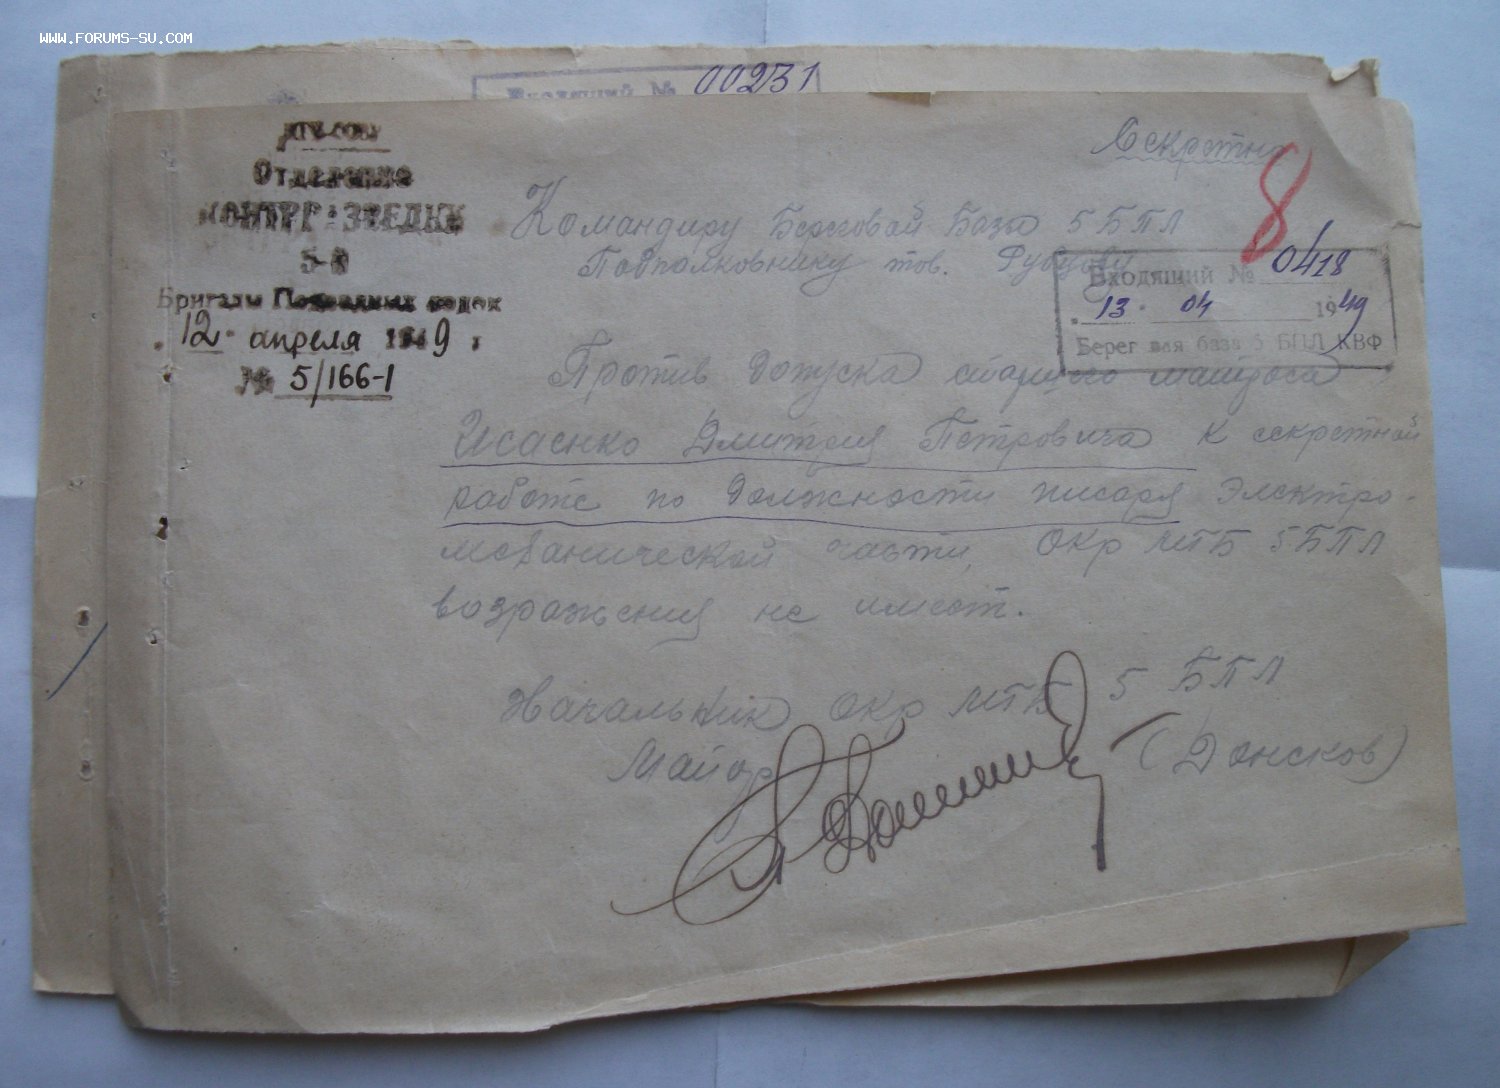 WWW.FORUMS-SU.COM
Входящий № 00231
Секретно
8
Отделение
КОНТРРАЗВЕДКИ
5-й
Бригады Подводных лодок
12 апреля 1949 г.
№ 5/166-1
Командиру Береговой Базы 5 БПЛ
Подполковнику тов.
Входящий № 0418
13. 04 1949
Береговая база 5 БПЛ КВФ
Против допуска старшего матроса
Исаенко Дмитрия Петровича к секретной
работе по должности писаря Электро-
механической части, ОКР МГБ 5 БПЛ
возражения не имеет.
Начальник ОКР МГБ 5 БПЛ
Майор (Донсков)